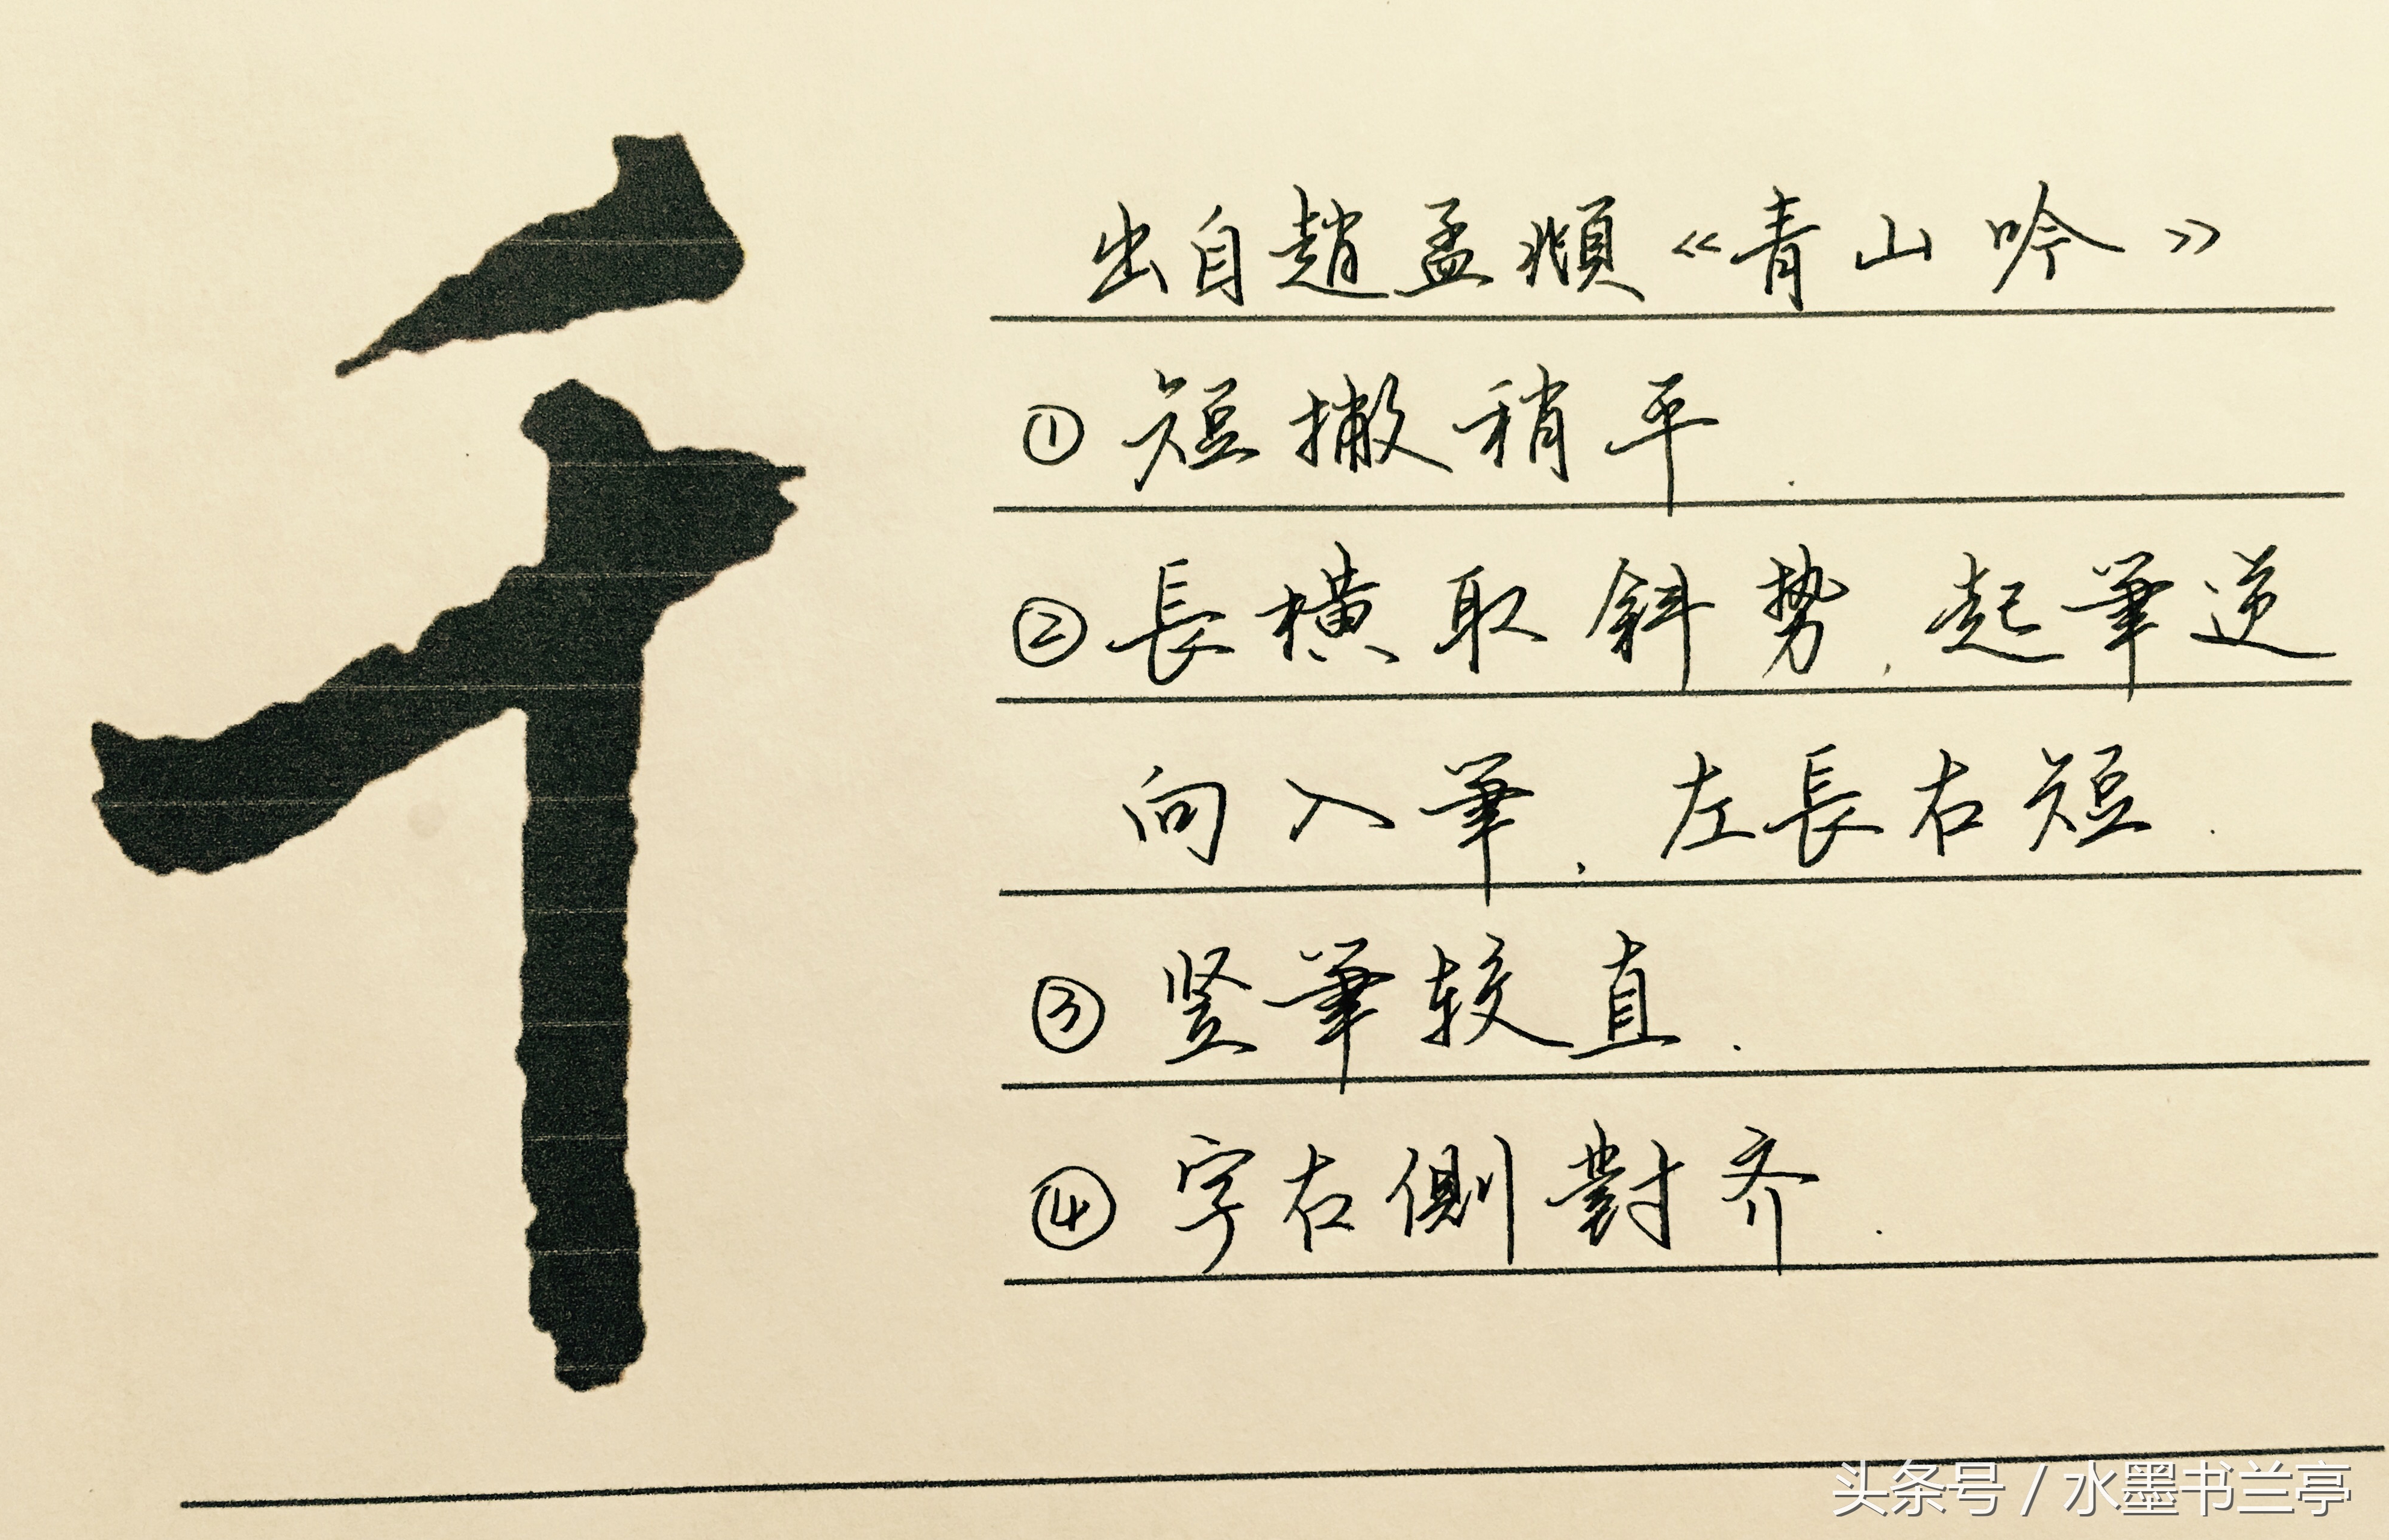 千
出自趙孟頫《青山吟》
①短撇稍平.
②長橫取斜势,起筆逆
向入筆,左長右短.
③竖筆较直.
④字右側對齐.
头条号 / 水墨书兰亭